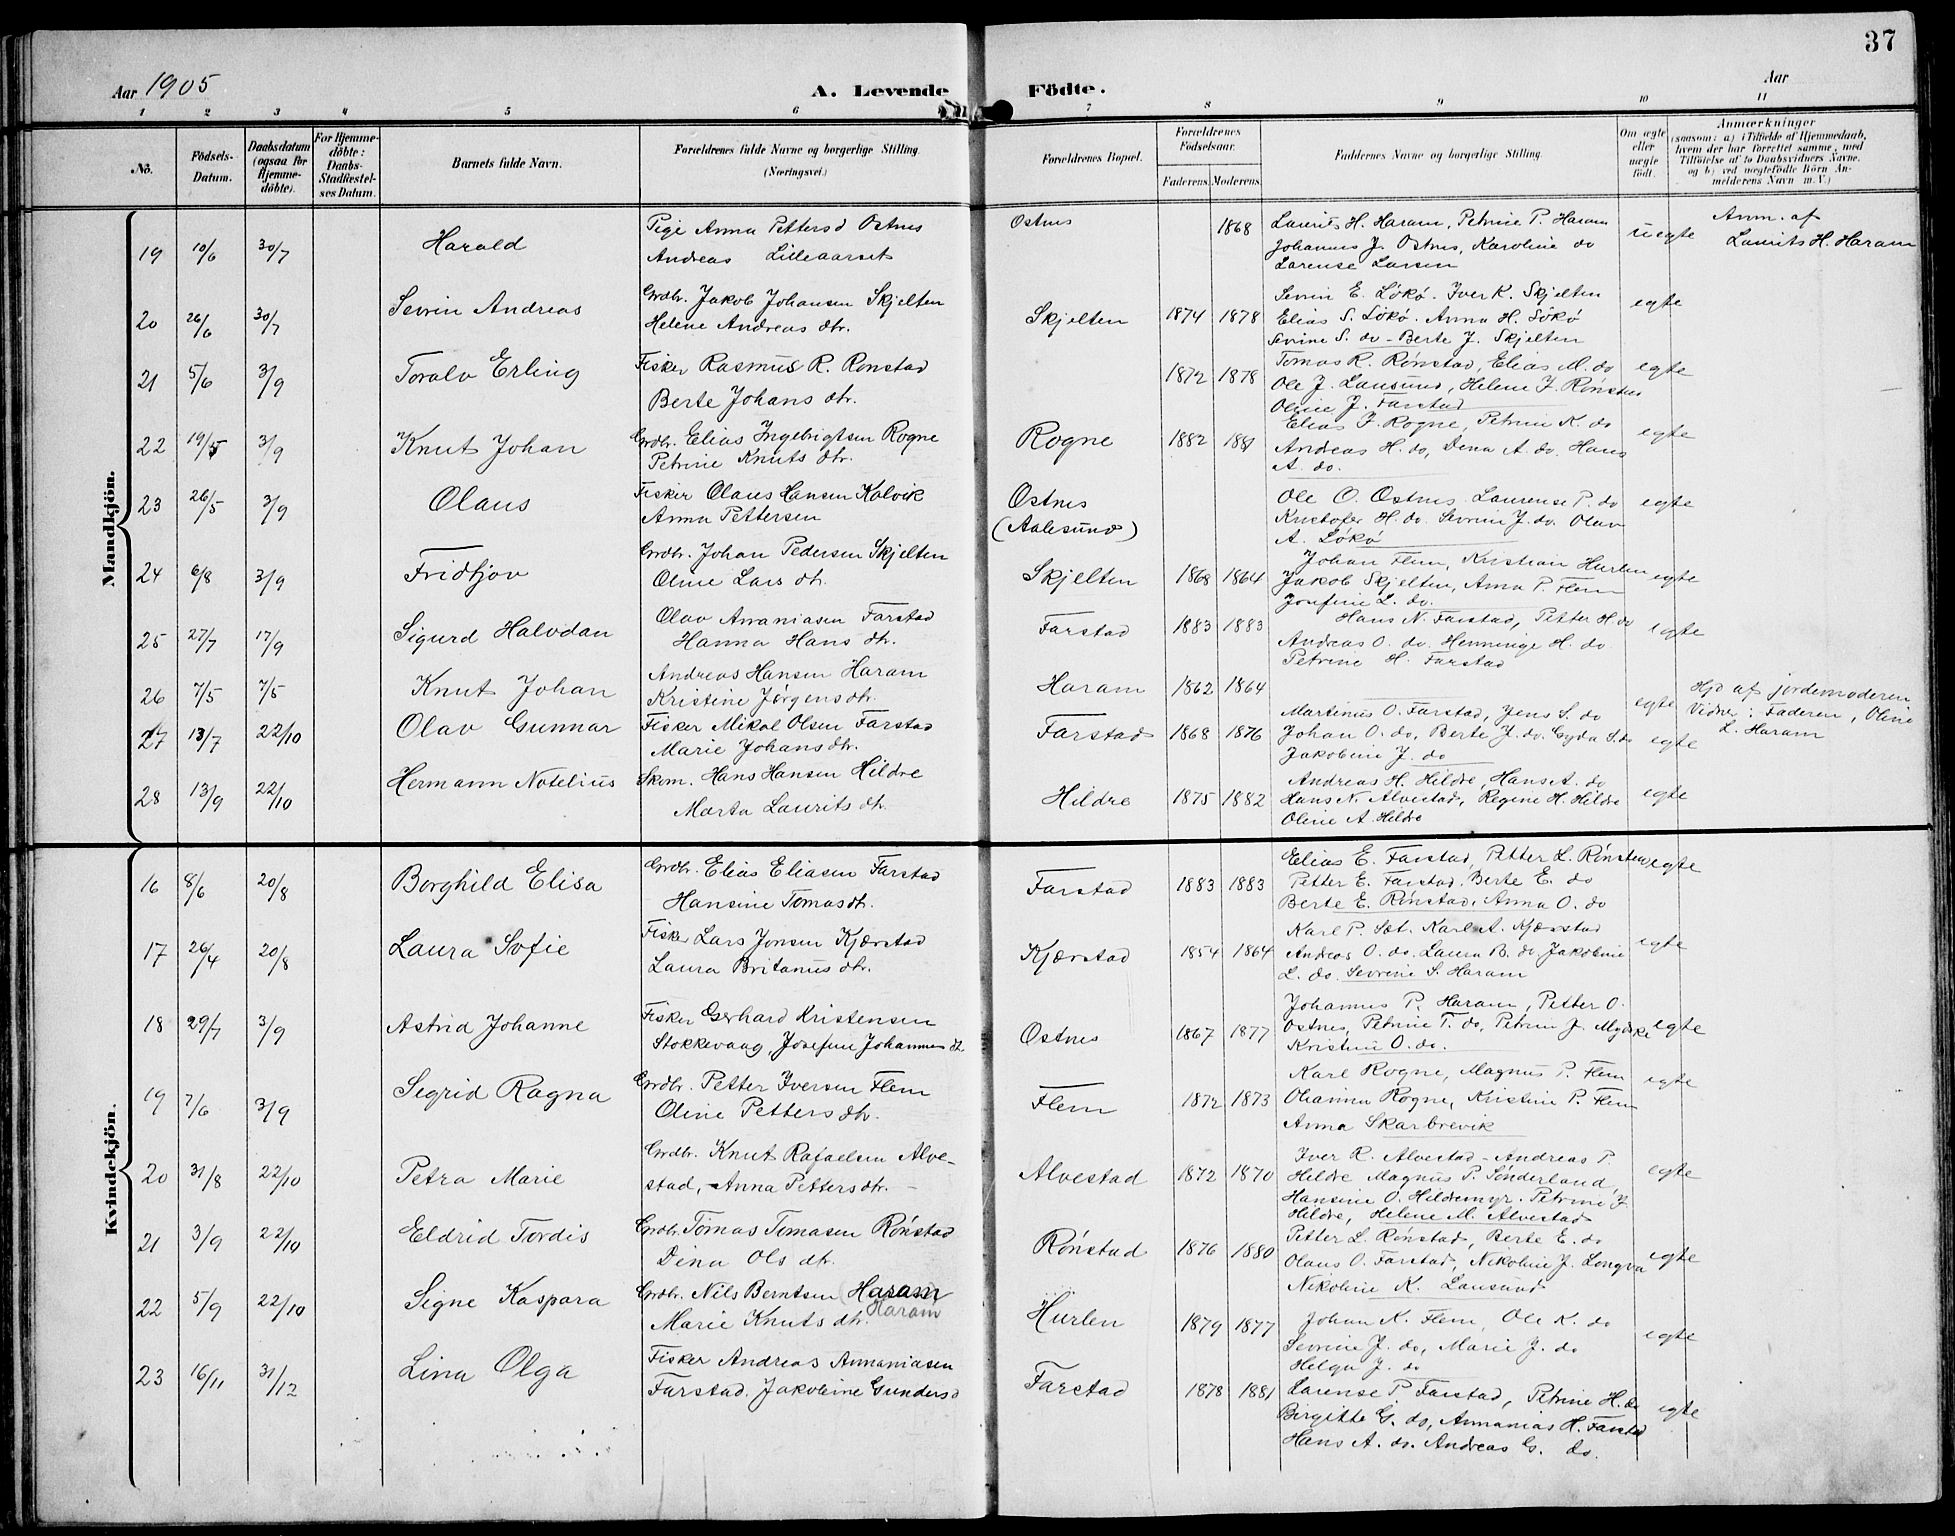 37
Aar 1905
A. Levende Födte.
Aar
1 2 3 4 5 6 7 8 9 10 11
No.
Födsels-Datum.
Daabsdatum (ogsaa for Hjemme-döbte).
For Hjemme-döbte: Daabs-Stadfæstel-ses Datum.
Barnets fulde Navn.
Forældrenes fulde Navne og borgerlige Stilling. (Næringsvei.)
Forældrenes Bopæl.
Forældrenes Födselsaar.
Faderens. Moderens.
Faddernes Navne og borgerlige Stilling.
Om ægte eller uægte födt.
Anmærkninger
(saasom: a) i Tilfælde af Hjemmedaab, hvem der har forrettet samme, med Tilföielse af to Daabsvidners Navne, og b) ved uægtefödte Börn An-melderens Navn m. V.)
Mandkjön.
19 10/6 30/7 Harald
Pige Anna Pettersd Ostnes
Andreas Lilleaarset
Ostnes 1868
Laurits H. Haram, Petrine P. Haram
Johannes J. Ostnes, Karoline do
Larense Larsen
uegte
Anm. af
Laurits H. Haram
20 26/6 30/7 Sevrin Andreas
Grdbr. Jakob Johansen Skjelten
Helene Andreas dtr.
Skjelten 1874 1878
Sevrin E. Lökö. Iver K. Skjelten
Elias S. Lökö. Anna H. Lökö
Sevine S. do - Berte J. Skjelten
egte
21 5/6 3/9 Toralv Erling
Fisker Rasmus R. Rønstad
Berte Johans dtr.
1872 1878
Tomas R. Rønstad, Elias M. do
Ole J. Lausund, Helene J. Rønstad
Oline J. Farstad
egte
22 19/5 3/9 Knut Johan
Grdbr. Elias Ingebrigtsen Rogne
Petrine Knuts dtr.
Rogne 1882 1881
Elias J. Rogne, Petrine K. do
Andreas H. do, Dena A. do. Hans
A. do.
egte
23 26/5 3/9 Olaus
Fisker Olaus Hansen Kalvik
Anna Pettersen
Ostnes
(Aalesund)
Ole O. Ostnes. Laurense P. do
Kristofer H. do. Sevrine J. do. Olav
A. Lökö
egte
24 6/8 3/9 Fridtjov
Grdbr. Johan Pedersen Skjelten
Oline Lars dtr.
Skjelten 1868 1864
Johan Flem, Kristian Hurlen
Jakob Skjelten, Anna P. Flem
Josefine L. do.
egte
25 27/7 17/9 Sigurd Halvdan
Olav Annaniasen Farstad
Hanna Hans dtr.
Farstad 1883 1883
Hans N. Farstad, Petter H. do
Andreas O. do. Henninge H. do.
Petrine H. Farstad
egte
26 7/5 7/5 Knut Johan
Andreas Hansen Haram
Kristine Jörgensdtr.
Haram 1862 1864
egte
Hjd af jordemoderen
Vidner: Faderen, Oline
L. Haram
27 13/7 22/10 Olav Gunnar
Fisker Mikal Olsen Farstad
Marie Johansdtr.
Farstad 1868 1876
Martinus O. Farstad, Jens S. do
Johan O. do, Berte J. do. Gyda S. do
Jakobine J. do
egte
28 13/9 22/10 Hermann Notelius
Skom. Hans Hansen Hildre
Marta Laurits dtr.
Hildre 1875 1882
Andreas H. Hildre, Hans A. do
Hans N. Alvestad, Regine H. Hildre
Oline A. Hildre
egte
Kvindekjön.
16 8/6 20/8 Borghild Elisa
Grdbr. Elias Eliasen Farstad
Hansine Tomasdtr.
Farstad 1883 1883
Elias E. Farstad, Petter L. Rønstad
Petter E. Farstad, Berte E. do
Berte E. Rønstad, Anna O. do
egte
17 26/4 20/8 Laura Sofie
Fisker Lars Jonsen Kjærstad
Laura Britanus dtr.
Kjærstad 1854 1864
Karl P. Sæt. Karl A. Kjærstad
Andreas O. do. Laura B. do Jakobine
L. do. Sevrine S. Haram
egte
18 29/7 3/9 Astrid Johanne
Fisker Gerhard Kristensen
Stokkevaag, Josefine Johannes dtr
Ostnes 1867 1877
Johannes P. Haram, Petter O.
Ostnes, Petrine T. do, Petrine J. Myklebust
Kristine O. do.
egte
19 7/6 3/9 Segrid Ragna
Grdbr. Petter Iversen Flem
Oline Petters dtr.
Flem 1872 1873
Karl Rogne, Magnus P. Flem
Ohanna Rogne, Kristine P. Flem
Anna Skarbrevik
egte
20 31/8 22/10 Petra Marie
Grdbr. Knut Rafaelsen Alve-
stad, Anna Pettersdtr.
Alvestad 1872 1870
Iver R. Alvestad - Andreas P.
Hildre Magnus P. Sönderland,
Hansine O. Hildremyr. Petrine J.
Hildre, Helene M. Alvestad
egte
21 3/9 22/10 Eldrid Tordis
Grdbr. Tomas Tomasen Rønstad
Dina Ols dtr.
Rønstad 1876 1880
Petter L. Rønstad, Berte E. do
Olaus O. Farstad, Nikoline J. Longva
Nikoline K. Lausund
egte
22 5/9 22/10 Signe Kaspara
Grdbr. Nils Berntsen (Haram)
Marie Knuts dtr. Haram
Hurlen 1879 1877
Johan K. Flem, Ole K. do
Sevrine J. do, Marie J. do
Helga J. do
egte
23 16/11 31/12 Lina Olga
Fisker Andreas Annaniasen
Farstad. Jakobine Gundersd
Farstad 1878 1881
Larense P. Farstad, Petrine H. do
Birgitte G. do, Annanias H. Farstad
Hans A. do. Andreas G. do.
egte